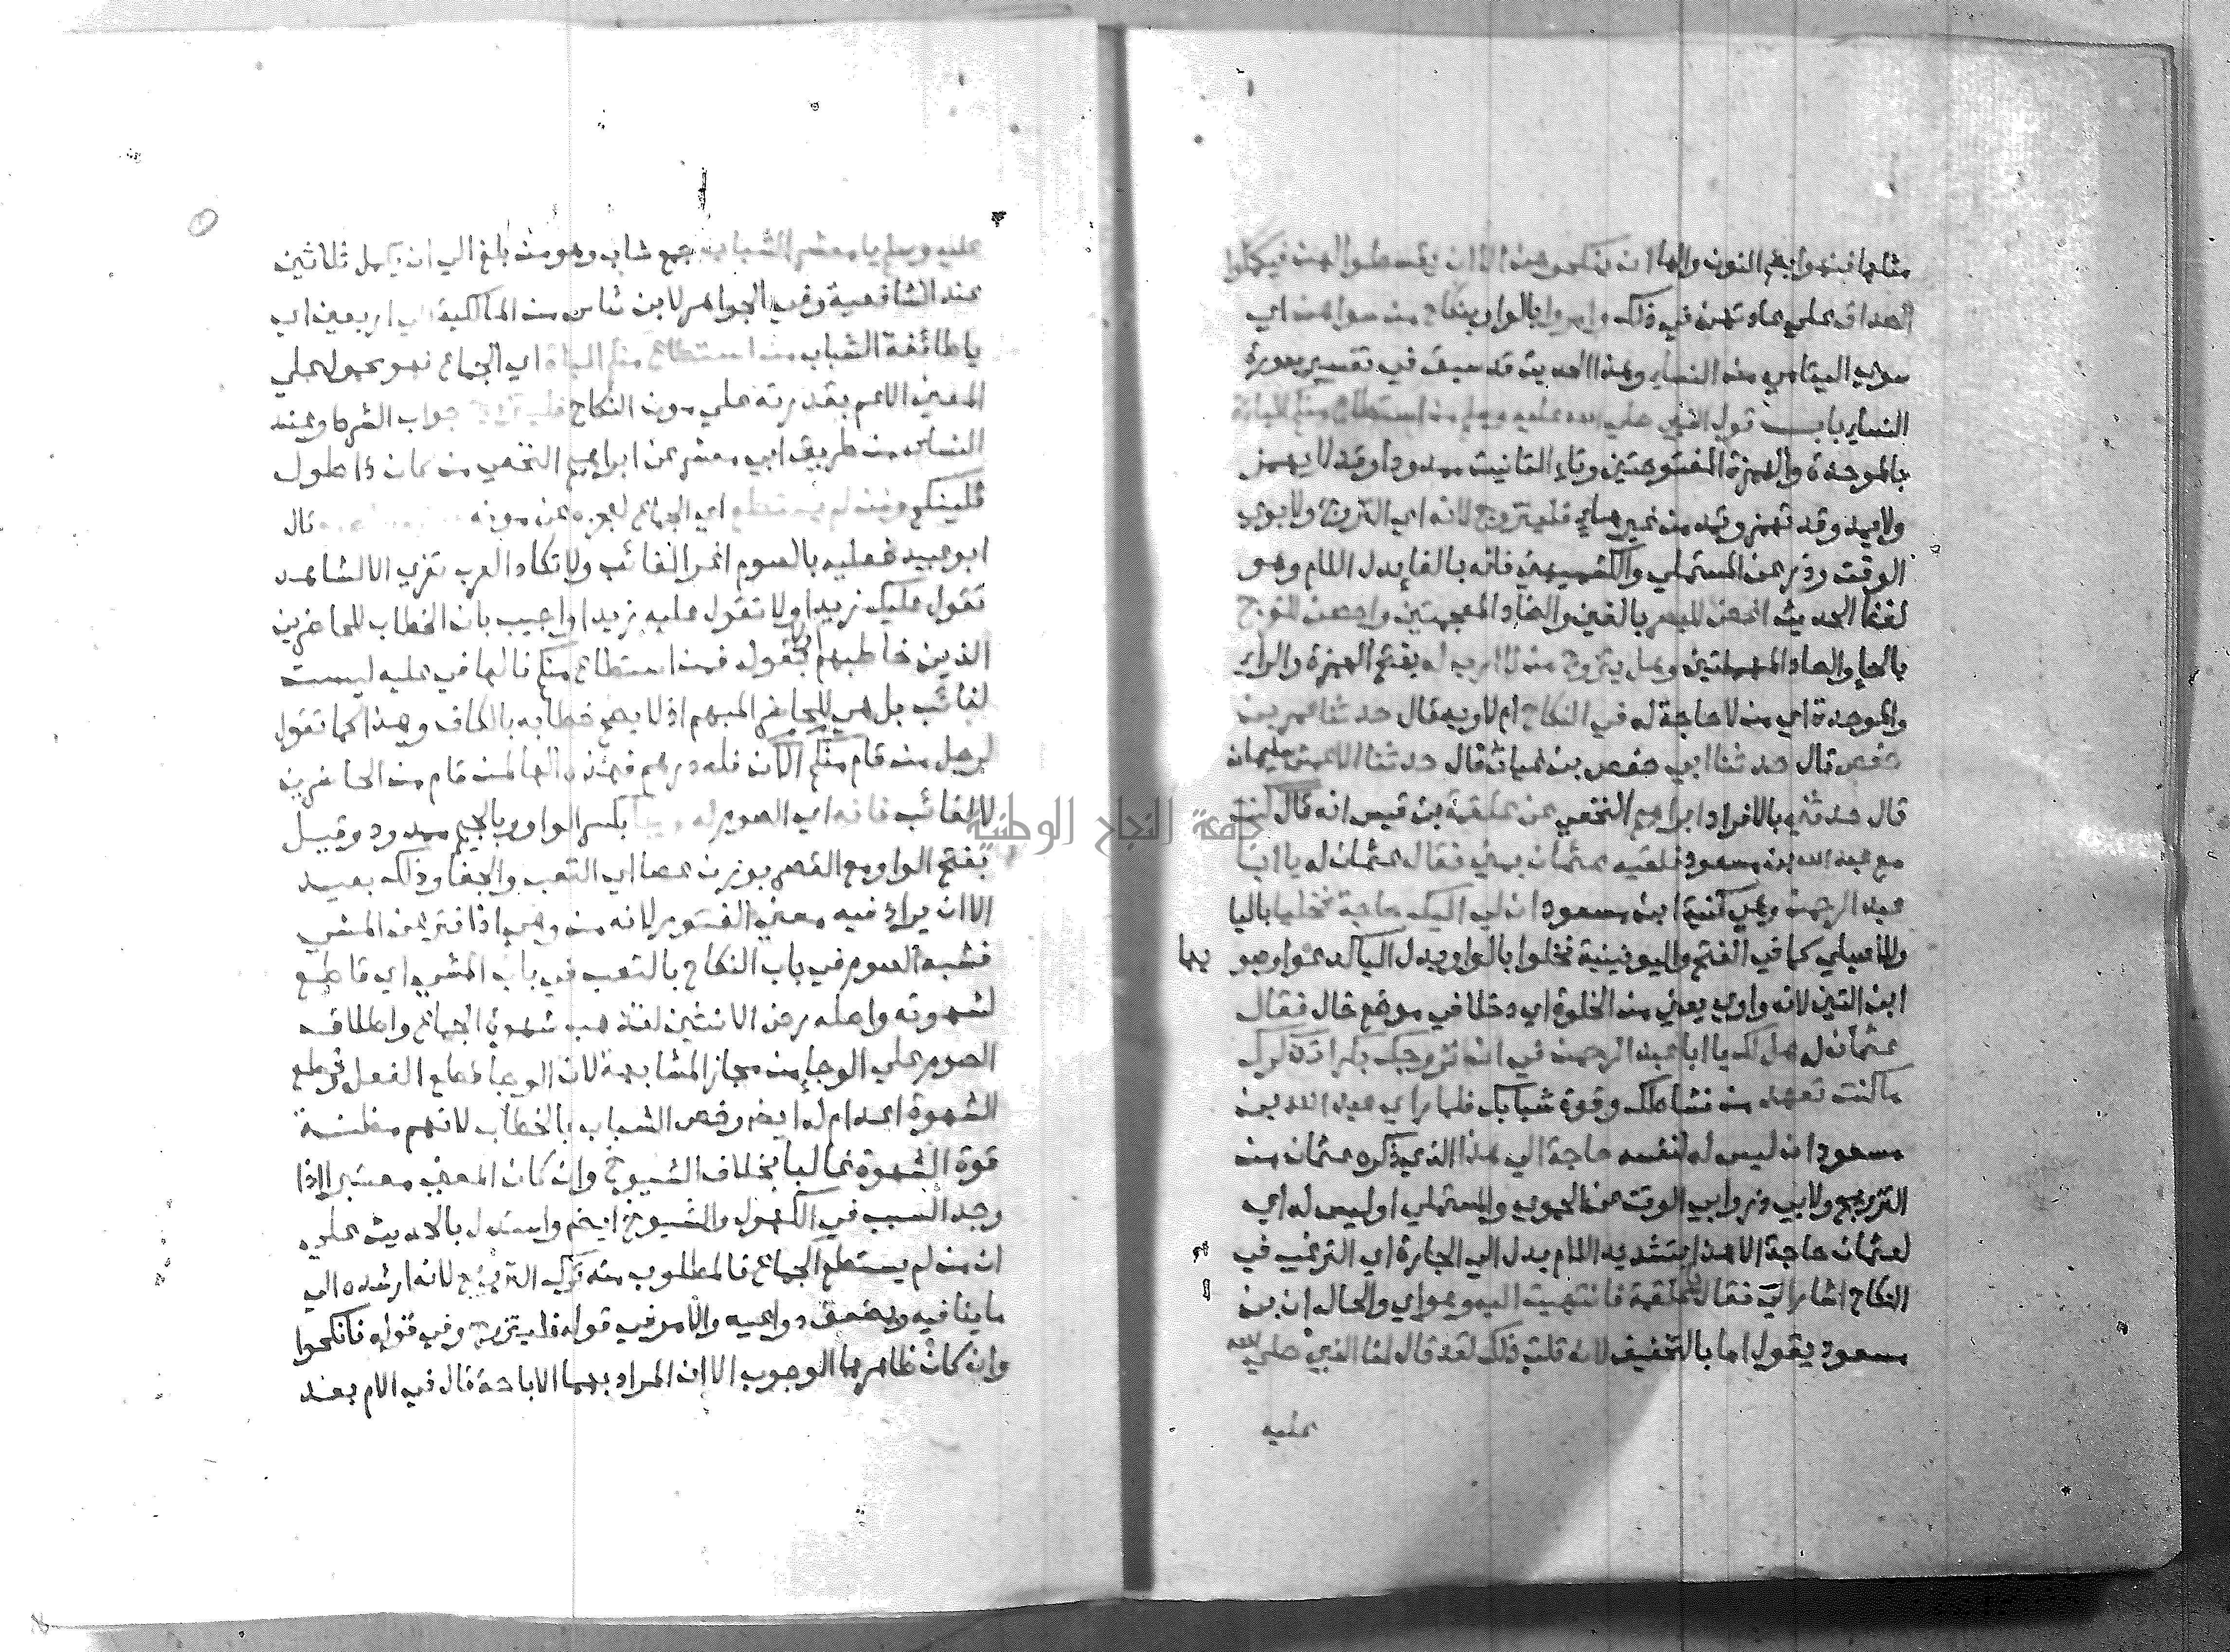 مثلها فنهوا بضم النون والها ان ينكحوهن الا ان يقسطوا لهن فيكملوا
الصداق علي عادتهن في ذلك وامروا بالواو بنكاح من سواهن اي
سوي اليتامي من النساء وهذا الحديث قد سبق في تفسير سورة
النساء باب قول النبي صلي الله عليه وسلم من استطاع منكم الباءة
بالموحدة والهمزة المفتوحتين وتاء التانيث ممدودا وقد لا يهمز
ولا يمد وقد تهمز وتمد من غير هاء فليتزوج لانه اي التزوج ولابوي
الوقت وذر عن المستملي والكشميهني فانه بالفاء بدل اللام وهو
لفظ الحديث اغض للبصر بالغين والضاد المعجمتين واحصن للفرج
بالحاء والصاد المهملتين وهل يتزوج من لا ارب له بفتح الهمزة والراء
والموحدة اي من لا حاجة له في النكاح ام لا وبه قال حدثنا عمر بن
حفص قال حدثنا ابي حفص بن غياث قال حدثنا الاعمش سليمان
قال حدثني بالافراد ابراهيم النخعي عن علقمة بن قيس انه قال كنت
مع عبد الله بن مسعود فلقيه عثمان بمني فقال عثمان له يا ابا
عبد الرحمن وهي كنية ابن مسعود ان لي اليك حاجة فخليا باليا
وللاصيلي كما في الفتح واليونينية فخلوا بالواو بدل اليا كدعوا وصو بها
ابن التين لانه واوي يعني من الخلوة اي دخلا في موضع خال فقال
عثمان له هل لك يا ابا عبد الرحمن في ان نزوجك بكرا تذكرك
ما كنت تعهد من نشاطك وقوة شبابك فلما راي عبد الله بن
مسعود ان ليس له لنفسه حاجة الي هذا الذي ذكره عثمان من
التزويج ولابي ذر وابي الوقت عن الحموي والمستملي او ليس له اي
لعثمان حاجة الا هذا بتشديد اللام بدل الي الجارة اي الترغيب في
النكاح اشار الي فقال يا علقمة فانتهيت اليه وهو اي والحال ان بن
مسعود يقول اما بالتخفيف لان قلت ذلك لقد قال لنا النبي صلي الله
عليه
عليه وسلم يا معشر الشباب جمع شاب وهو من بلغ الي ان يكمل ثلاثين
عند الشافعية وفي الجواهر لابن شاس من المالكية الي اربعين اي
يا طائفة الشباب من استطاع منكم الباءة اي الجماع فهو محمول علي
المعني الاعم بقدرته علي مون النكاح فليتزوج جواب الشرط وعند
النساي من طريق ابي معشر عن ابراهيم النخعي من كان ذا طول
فلينكح ومن لم يستطع اي الجماع لعجزه عن مونه قال
ابو عبيد فعليه بالصوم اغرا لغائب ولا تكاد العرب تغري الا الشاهد
تقول عليك زيدا ولا تقول عليه زيدا واجيب بان الخطاب للحاضرين
الذين خاطبهم اولا بقوله فمن استطاع منكم فالها في عليه ليست
لغائب بل هي للحاضر المبهم اذ لا يصح خطابه بالكاف وهذا كما تقول
لرجل من قام منكم الان فله درهم فهذه الها لمن قام من الحاضرين
لا لغائب فانه اي الصوم له وجاء بكسر الواو وبالجيم ممدود وقيل
بفتح الواو مع القصر بوزن عصا اي التعب والجفا وذلك بعيد
الا ان يراد فيه معني الفتور لانه من وجي اذا فتر عن المشي
فشبه الصوم في باب النكاح بالتعب في باب المشي اي قاطع
لشهوته واصله رض الانثيين لتذهب شهوة الجماع واطلاق
الصوم علي الوجاء من مجاز المشابهة لان الوجا قطع الفعل وقطع
الشهوة اعدام له ايضا وخص الشباب بالخطاب لانهم مظنة
قوة الشهوة غالبا بخلاف الشيوخ وان كان المعني معتبرا اذا
وجد السبب في الكهول والشيوخ ايضا واستدل بالحديث علي
ان من لم يستطع الجماع فالمطلوب منه ترك التزويج لانه ارشده الي
ما ينافيه ويضعف دواعيه والامر في قوله فليتزوج وفي قوله فانكحوا
وان كان ظاهرهما الوجوب الا ان المراد بهما الاباحة قال في الام بعد
جامعة النجاح الوطنية